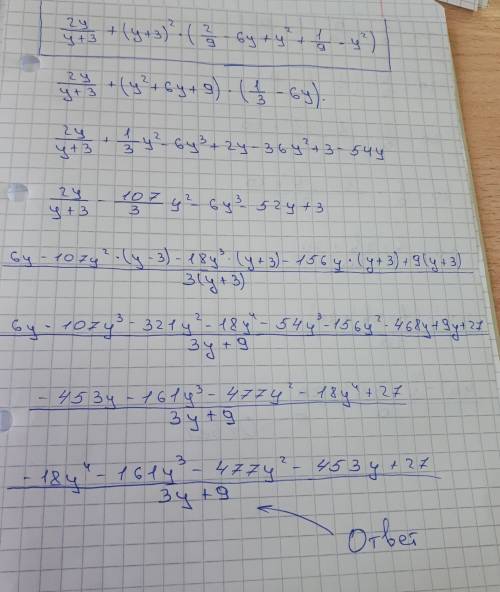 2y/(y+3) + (y+3)² · (2/9 - 6y + y² + 1/9 - y²)
2y/(y+3) + (y² + 6y + 9) · (1/3 - 6y).
2y/(y+3) + 1/3 y² - 6y³ + 2y - 36y² + 3 - 54y
2y/(y+3) - 107/3 y² - 6y³ - 52y + 3
(6y - 107y² · (y-3) - 18y³ · (y+3) - 156y · (y+3) + 9(y+3))/(3(y+3))
(6y - 107y³ - 321y² - 18y⁴ - 54y³ - 156y² - 468y + 9y + 27)/(3y+9)
(-453y - 161y³ - 477y² - 18y⁴ + 27)/(3y+9)
(-18y⁴ - 161y³ - 477y² - 453y + 27)/(3y+9)
Ответ